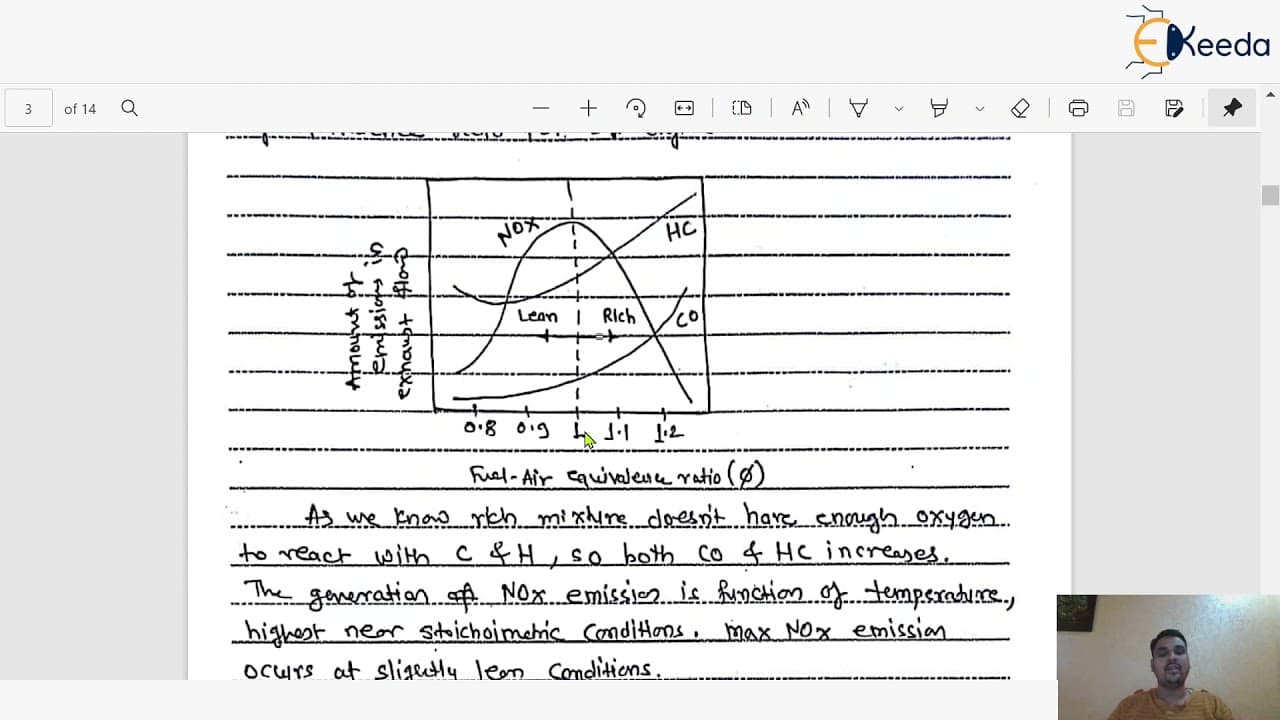 EKeeda
3 of 14
NOX
HC
Lean
Rich
CO
Amount of
emissions in
exhaust flow
0.8 0.9 1 1.1 1.2
Fuel-Air equivalence ratio (φ)
As we know rich mixture doesn't have enough oxygen
to react with C & H, so both CO & HC increases.
The generation of NOx emission is function of temperature,
highest near stoichoimetric conditions. max NOx emission
occurs at slightly lean conditions.